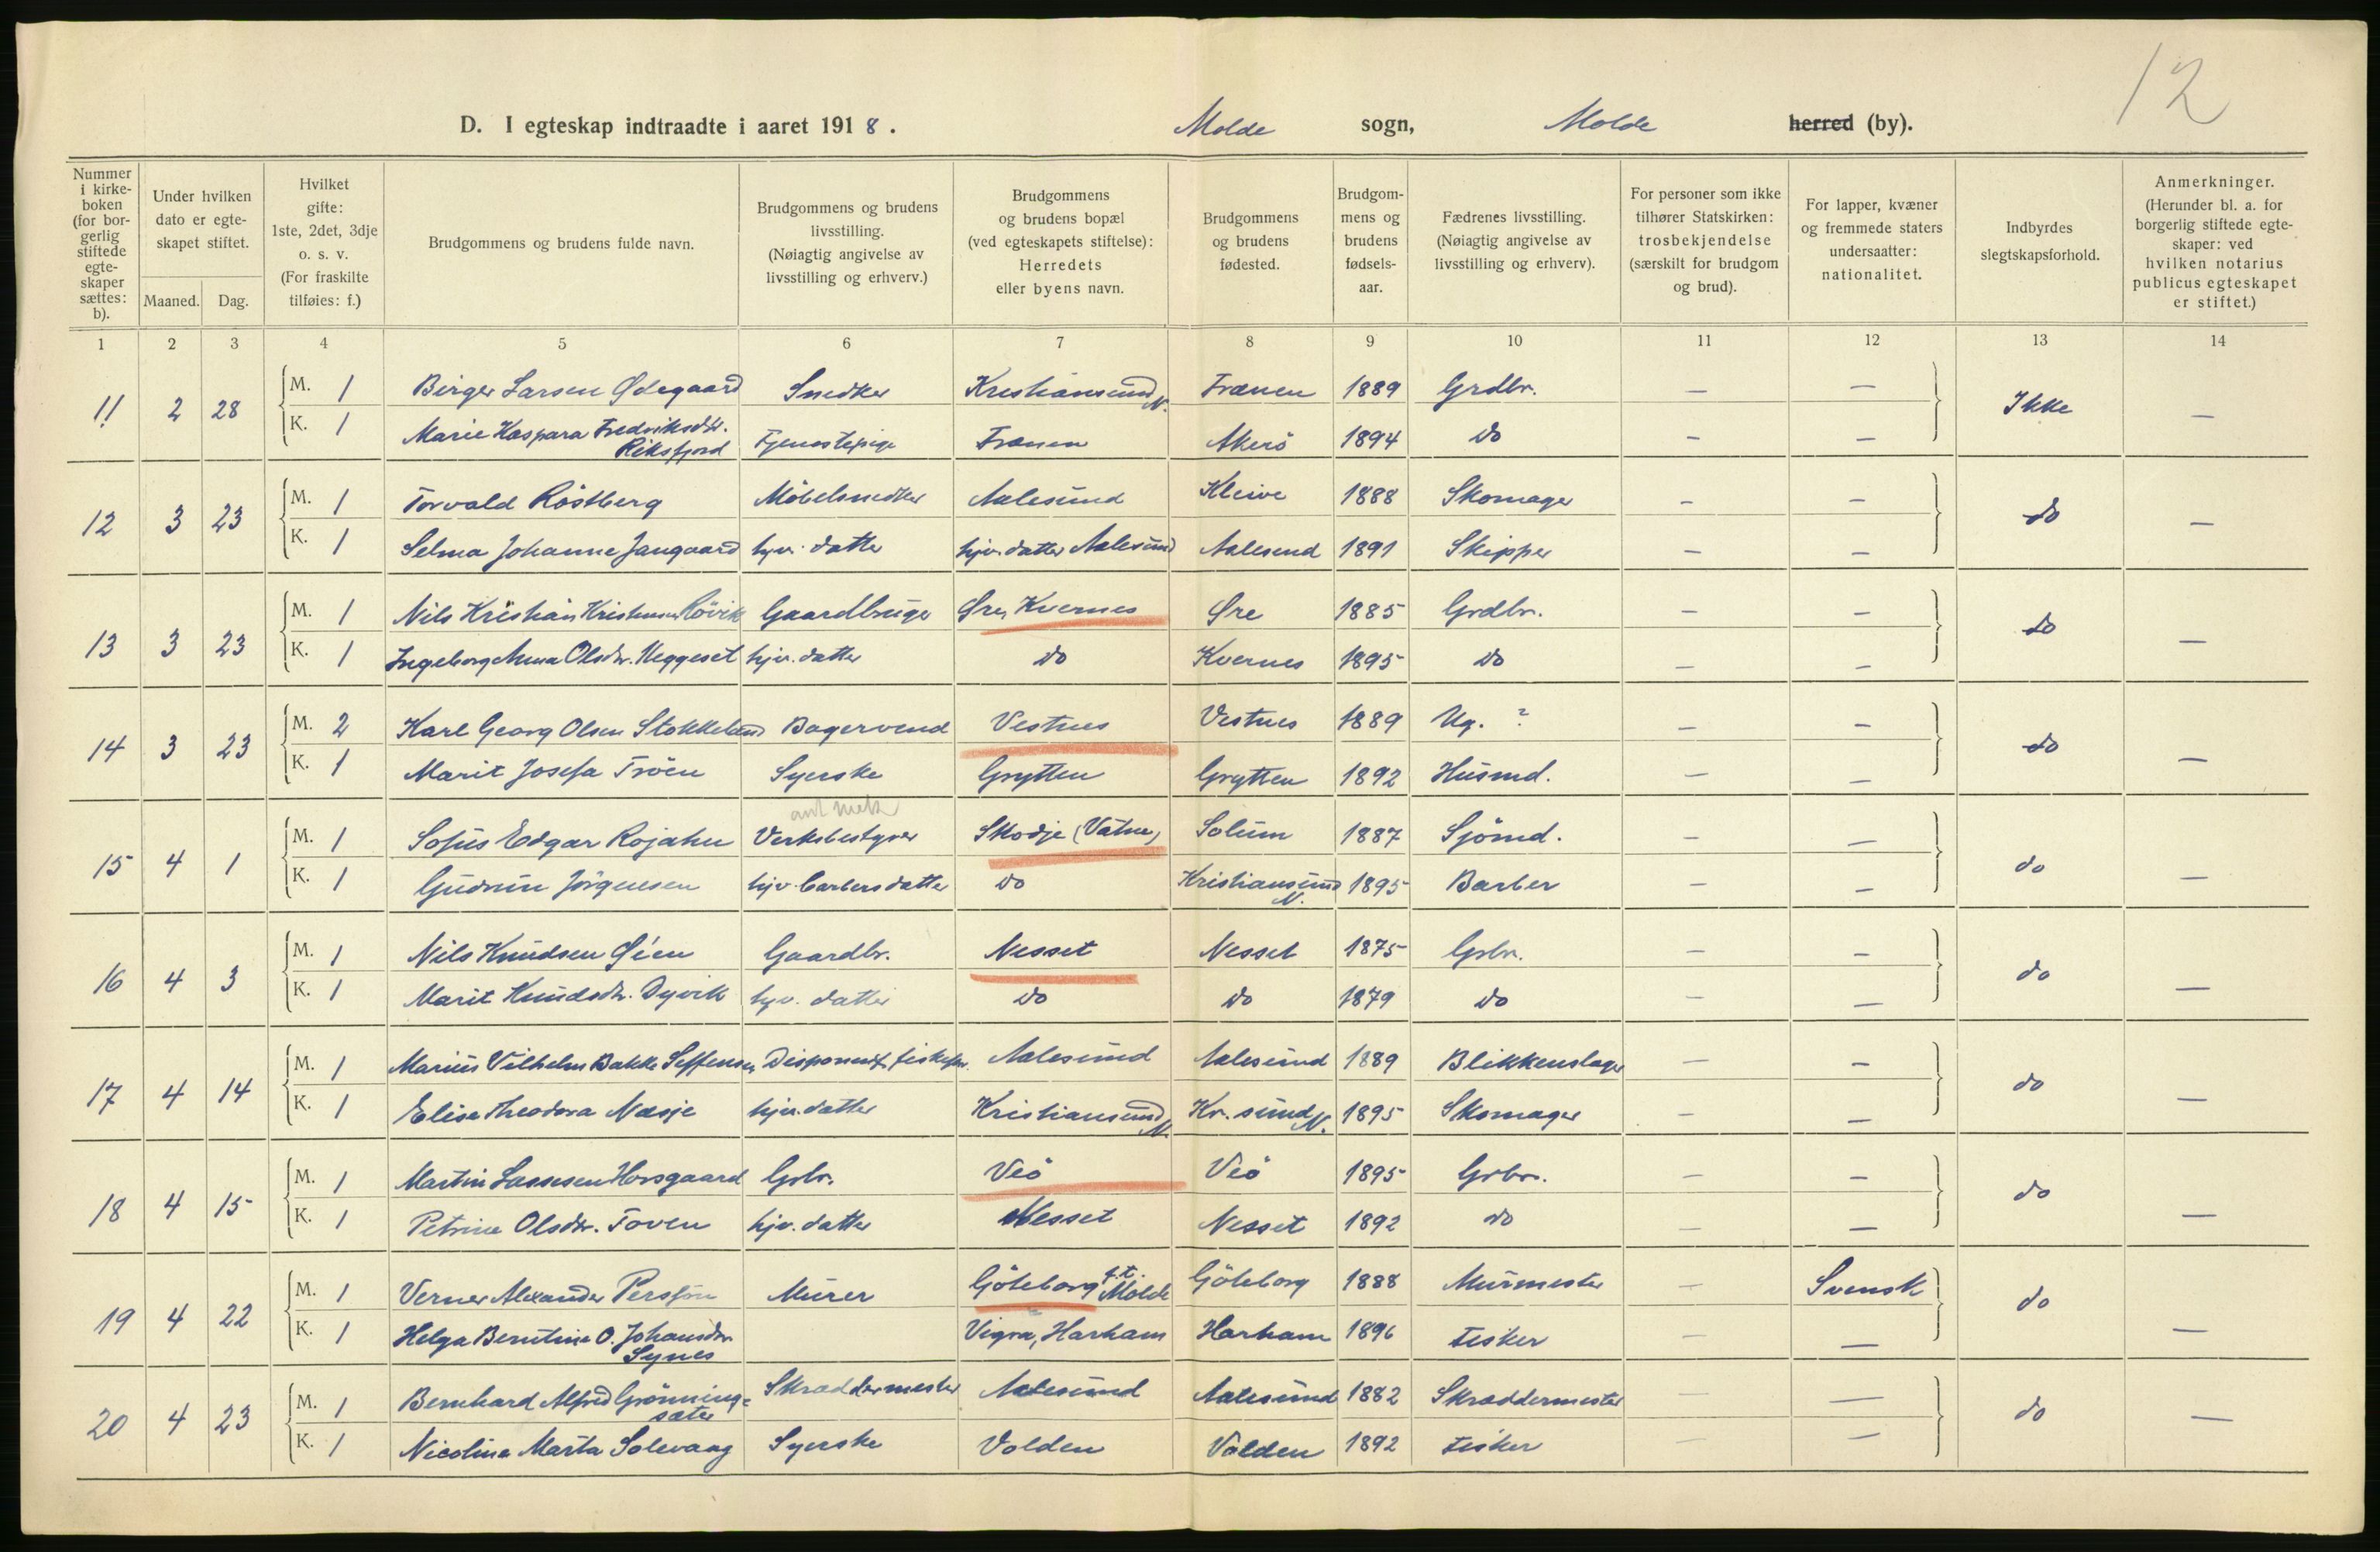 12
D. I egteskap indtraadte i aaret 1918. Molde sogn, Molde herred (by).
Nummer i kirke- boken (for bor- gerlig stiftede egte- skaper sættes: b).
Under hvilken dato er egte- skapet stiftet.
Maaned. Dag.
Hvilket gifte: 1ste, 2det, 3dje o. s. v. (For fraskilte tilføies: f.)
Brudgommens og brudens fulde navn.
Brudgommens og brudens livsstilling. (Nøiagtig angivelse av livsstilling og erhverv.)
Brudgommens og brudens bopæl (ved egteskapets stiftelse): Herredets eller byens navn.
Brudgommens og brudens fødested.
Brudgom- mens og brudens fødsels- aar.
Fædrenes livsstilling. (Nøiagtig angivelse av livsstilling og erhverv).
For personer som ikke tilhører Statskirken: trosbekjendelse (særskilt for brudgom og brud).
For lapper, kvæner og fremmede staters undersaatter: nationalitet.
Indbyrdes slegtskapsforhold.
Anmerkninger. (Herunder bl. a. for borgerlig stiftede egte- skaper: ved hvilken notarius publicus egteskapet er stiftet.)
1 2 3 4 5 6 7 8 9 10 11 12 13 14
11 2 28 M. 1 Birger Larsen Ødegaard Snedker Kristiansund N. Frænen 1889 Grdbr. — — Ikke —
K. 1 Marie Kaspara Fredriksdtr. Riksfjord Tjenestepige Frænen Akerö 1894 do — —
12 3 23 M. 1 Torvald Röstberg Möbelsnedker Aalesund Kleive 1888 Skomager — — do —
K. 1 Selma Johanne Jangaard hjv. datter hjv. datter Aalesund Aalesund 1891 Skipper — —
13 3 23 M. 1 Nils Kristian Kristensen Rövik Gaardbruger Øre, Kvernes Øre 1885 Grdbr. — — do —
K. 1 Ingeborg Anna Olsdtr. Neggeset hjv. datter do Kvernes 1895 do — —
14 3 23 M. 2 Karl Georg Olsen Stokkeland Bagersvend Vestnes Vestnes 1889 Ug. ? — — do —
K. 1 Marit Josefa Tröen Syerske Grytten Grytten 1892 Husmd. — —
15 4 1 M. 1 Sofus Edgar Rojahn Verksbestyrer Skodje (Vatne) Solum 1887 Sjömd. — — do —
K. 1 Gudrun Jörgensen hjv. barbers datter do Kristiansund N. 1895 Barber — —
16 4 3 M. 1 Nils Knudsen Øien Gaardbr. Nesset Nesset 1875 Grbr. — — do —
K. 1 Marit Knudsdtr. Dyvik hjv. datter do do 1879 do — —
17 4 14 M. 1 Marius Vilhelm Bakke Seffensen Disponent Aalesund Aalesund 1889 Blikkenslager — — do —
K. 1 Elise Theodora Næsje hjv. datter Kristiansund N. Kr. sund N. 1895 Skomager — —
18 4 15 M. 1 Martin Lassesen Horsgaard Grbr. Veö Veö 1895 Grbr. — — do —
K. 1 Petrine Olsdtr. Toven hjv. datter Nesset Nesset 1892 do — —
19 4 22 M. 1 Verner Alexander Persson Murer Göteborg f.t. Molde Göteborg 1888 Murmester — Svensk do —
K. 1 Helga Berntine O. Johansdtr. Synes Vigra, Harham Harham 1896 Fisker — —
20 4 23 M. 1 Bernhard Alfred Grönning- sæter Skræddermester Aalesund Aalesund 1882 Skræddermester — — do —
K. 1 Nicoline Marta Solevaag Syerske Volden Volden 1892 Fisker — —